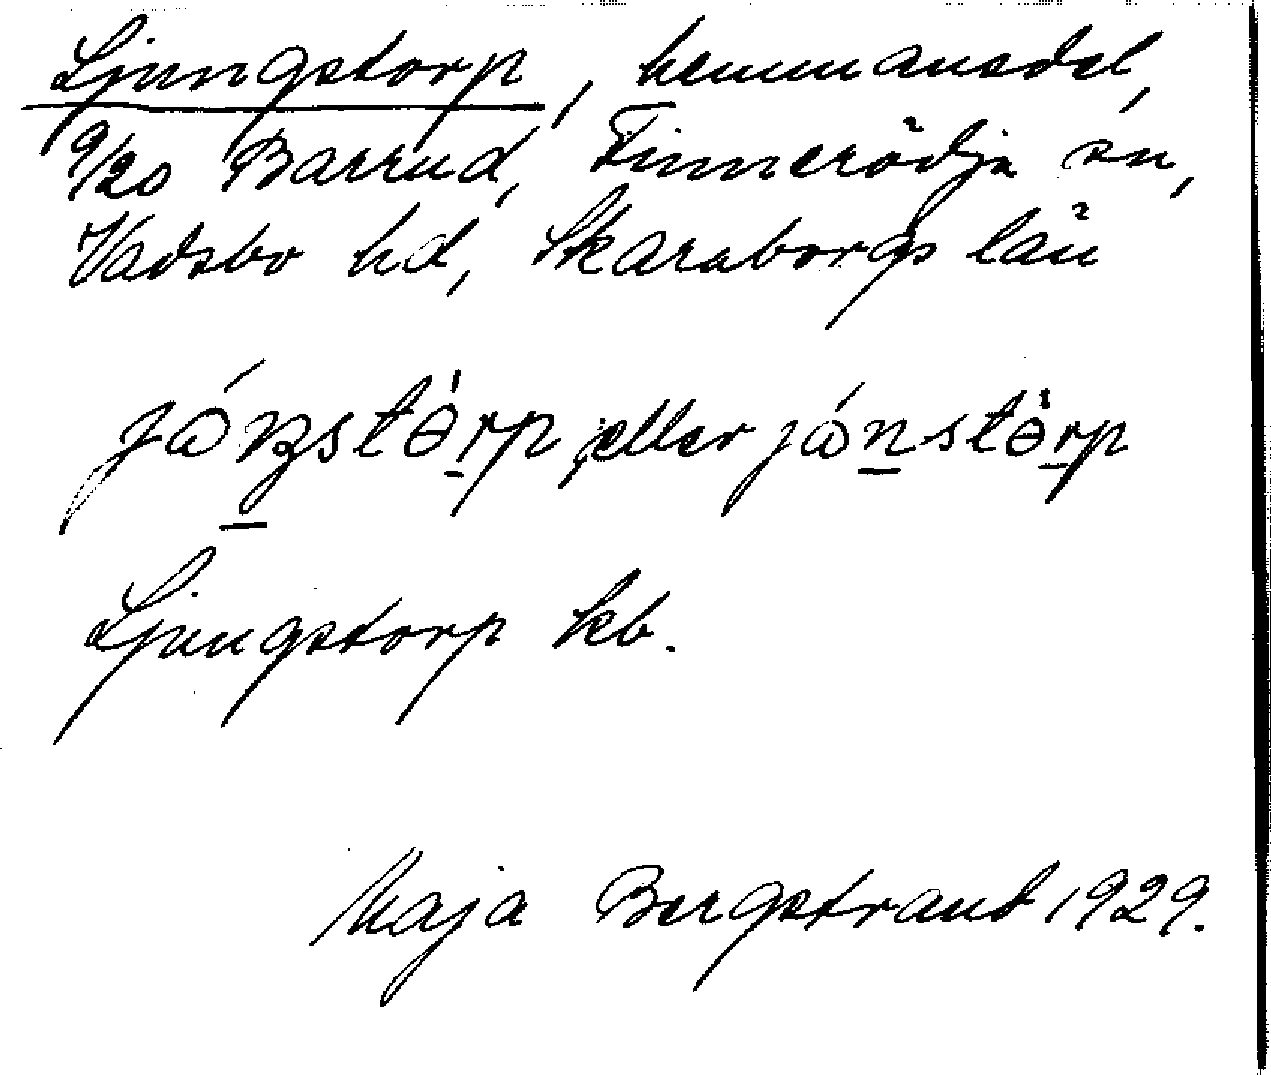 Ljungstorp, hemmansdel,
9/20 Barrud, Finnerödja sn,
Vadsbo hd, Skaraborgs län
jɷ́ŋstɵ̀rp, eller jɷ́nstɵ̀rp
Ljungstorp kb.
Maja Bergstrand 1929.